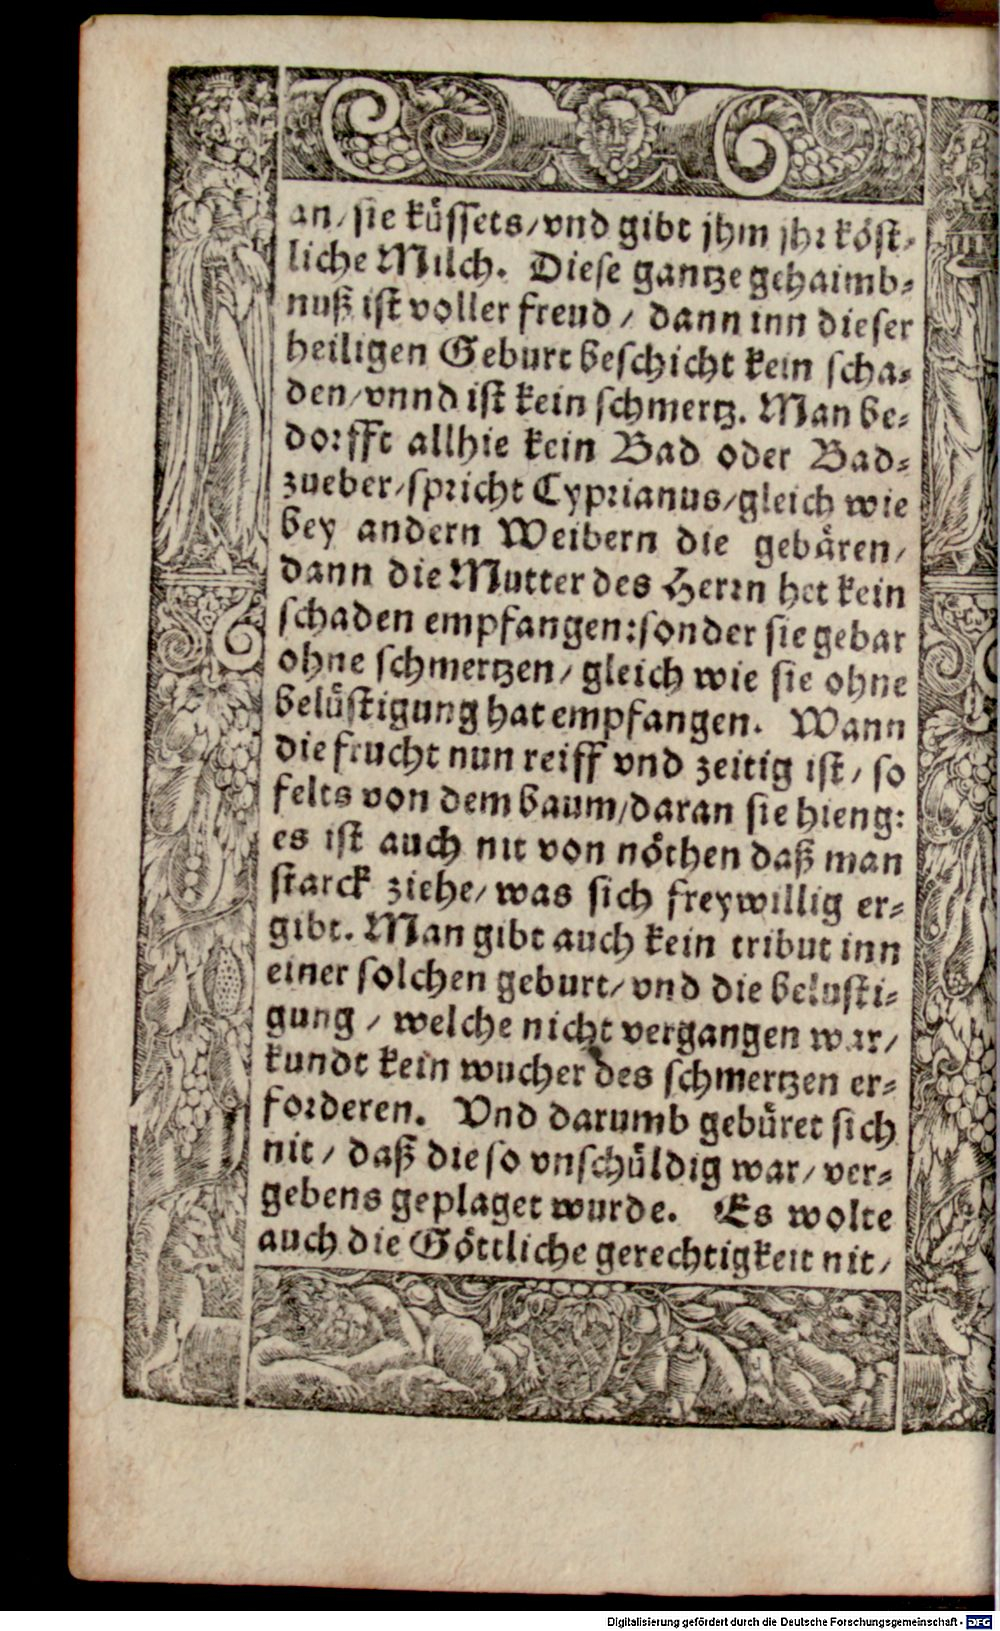 an/ sie küssets/ vnd gibt jhm jhr köst-
liche Milch. Diese gantze gehaimb-
nuß ist voller freud / dann inn dieser
heiligen Geburt beschicht kein scha-
den/ vnnd ist kein schmertz. Man be-
dorfft allhie kein Bad oder Bad-
zueber/ spricht Cyprianus/ gleich wie
bey andern Weibern die gebären/
dann die Mutter des Herrn het kein
schaden empfangen: sonder sie gebar
ohne schmertzen/ gleich wie sie ohne
belüstigung hat empfangen. Wann
die frucht nun reiff vnd zeitig ist/ so
felts von dem baum/ daran sie hieng:
es ist auch nit von nöthen daß man
starck ziehe/ was sich freywillig er-
gibt. Man gibt auch kein tribut inn
einer solchen geburt/ vnd die belusti-
gung / welche nicht vergangen war/
kundt kein wucher des schmertzen er-
forderen. Vnd darumb gebüret sich
nit/ daß die so vnschüldig war/ ver-
gebens geplaget wurde. Es wolte
auch die Göttliche gerechtigkeit nit/
Digitalisierung gefördert durch die Deutsche Forschungsgemeinschaft - DFG